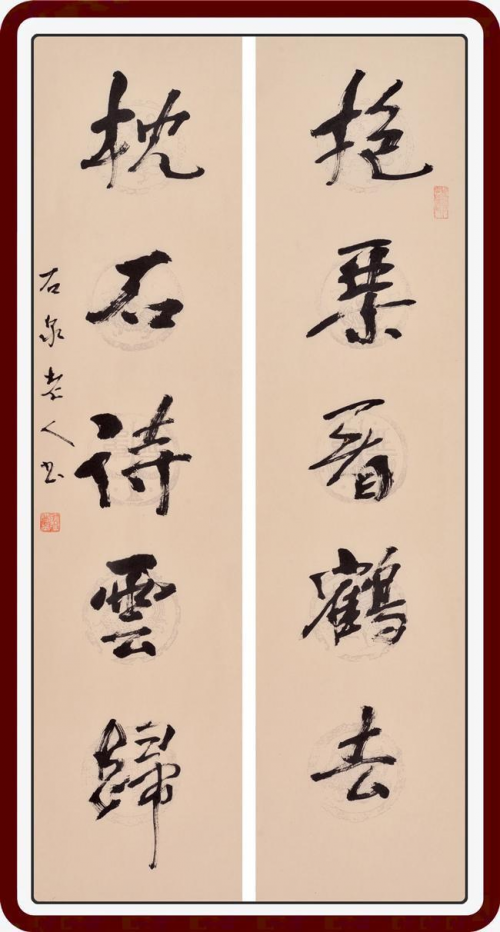 抱琹看鶴去
枕石待雲歸
石泉老人书